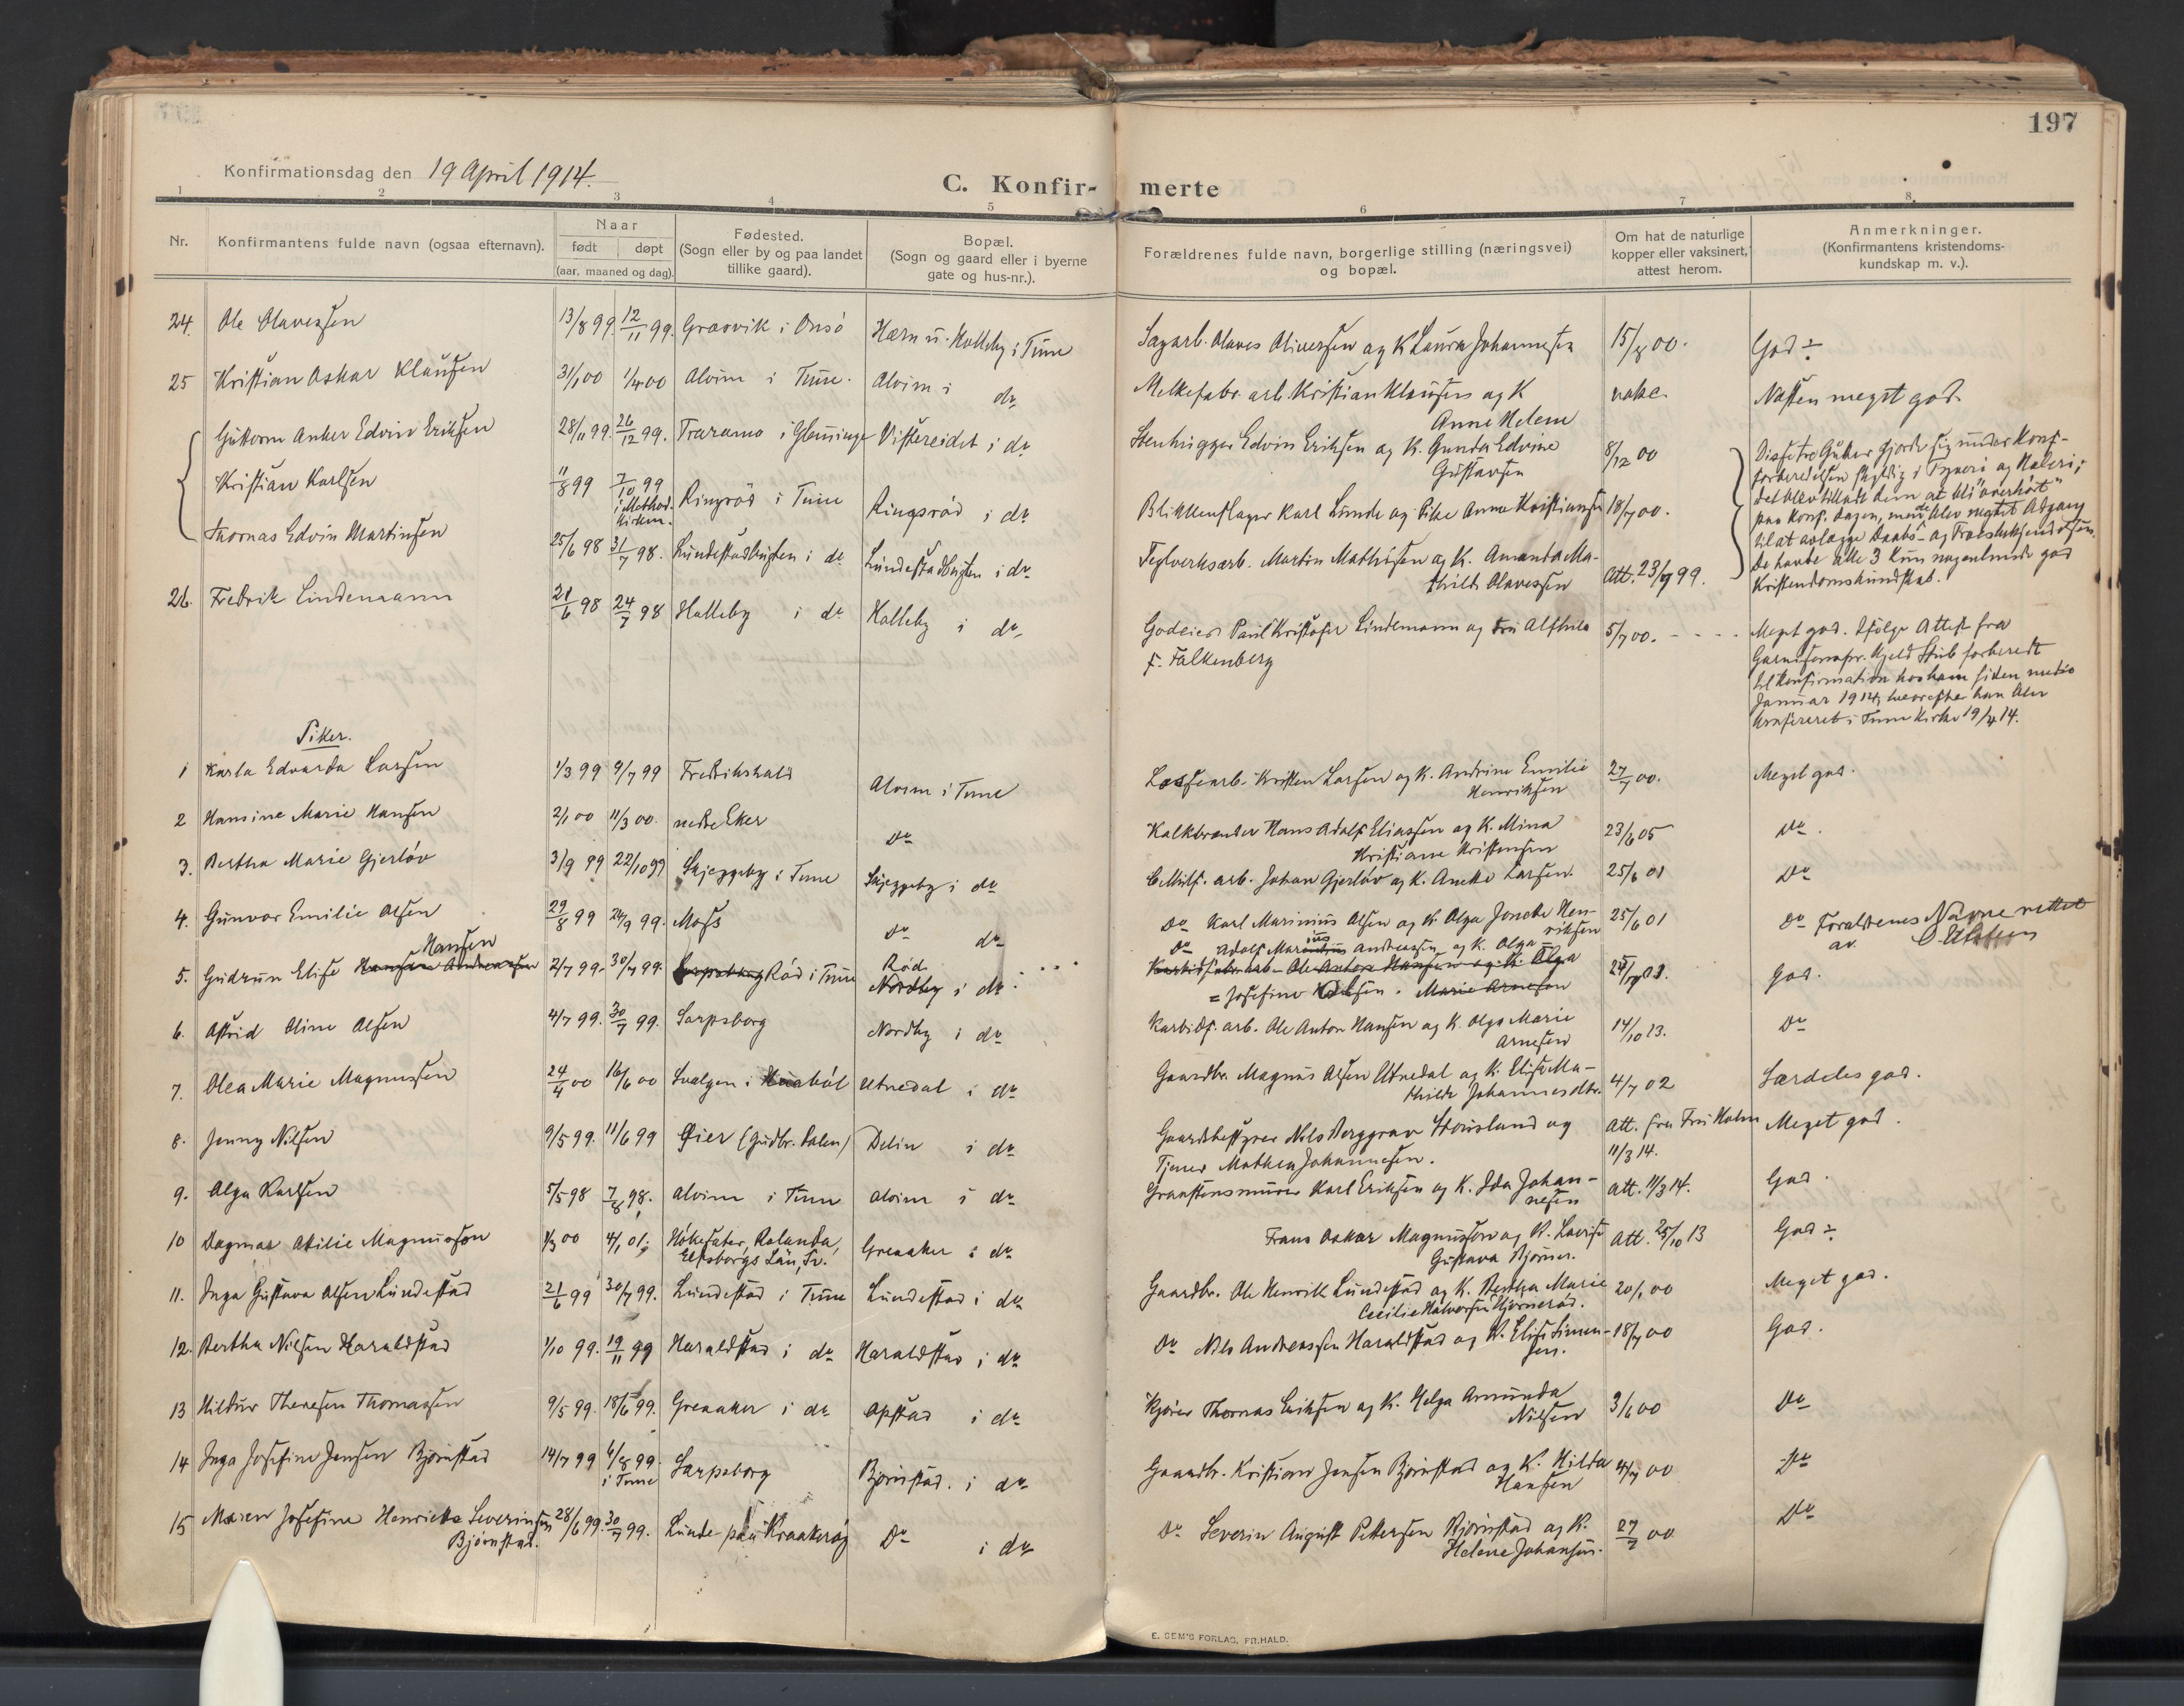 197
Konfirmationsdag den 19 April 1914.
C. Konfir- merte
1 2 3 4 5 6 7 8
Nr. Konfirmantens fulde navn (ogsaa efternavn). Naar født døpt (aar, maaned og dag). Fødested. (Sogn eller by og paa landet tillike gaard). Bopæl. (Sogn og gaard eller i byerne gate og hus-nr.). Forældrenes fulde navn, borgerlige stilling (næringsvei) og bopæl. Om hat de naturlige kopper eller vaksinert, attest herom. Anmerkninger. (Konfirmantens kristendoms- kundskap m. v.).
24. Ole Olavesen 13/8 99. 12/11 99. Græsvik i Onsö i Tune Sagarb. Olaves Oliversen og K Laura Johannesen 15/8 00. God ÷
25 Kristian Oskar Klausen 31/1 00 1/4 00 Alvim i Tune. Alvim i do Melkefabr. arb. Kristian Klausen og K Anne Helene vakc. Næsten meget god.
Guttorm Anker Edvin Eriksen 28/11 99. 26/12 99. i Glemminge Vistereidet i do Stenhugger Edvin Eriksen og K. Gunda Edvine Gustavsen 8/12 00
Kristian Karlsen 11/8 99 7/10 99 i Method. Kirken. Ringsröd i Tune Ringsröd i do Blikkenslager Karl Lunde og Pike Anna Kristiansen 18/7 00.
Thomas Edvin Martinsen 25/6 98 31/7 98. Lundestadbugten i do Lundestadbugten i do Teglverksarb. Martin Mathisen og K. Amanda Ma-
thilde Olavesen Att. 23/9 99.
Disse tre Gutter gjorde sig under Konf-
forberedelsen skyldig i Tyveri og Heleri;
det blev tilladt dem at bli "overhört"
paa Konf. dagen, men de blev negtet Adgang
til at avlægge Daabs- og Troesbekjendelsen.
De havde alle 3 kun nogenlunde god
Kristendomskundskab.
26. Fredrik Lindemann 21/6 98 24/7 98 Halleby i do Halleby i do Godeier Paul Kristofer Lindemann og Fru Alfhild
f. Falkenberg 5/7 00. - - - - Meget god. Ifölge Attest fra
Garnisonspr. Kjeld Stub forberedt
til Konfirmation hos ham siden medio
Januar 1914, hvorefter han blev
konfirmeret i Tune Kirke 19/4 14.
Piker.
1 Karla Edvarda Larsen 1/3 99 9/7 99 Fredrikshald Alvim i Tune Lossearb. Kristen Larsen og K. Andrine Emilie
Henriksen 27/7 00. Meget god.
2 Hansine Marie Hansen 2/1 00 11/3 00. nedre Eker Do Kalkbrænder Hans Adolf Eliassen og K. Mina
Kristiane Kristensen 23/6 05 Do.
3. Bertha Marie Gjerlöv 3/9 99 22/10 99 Skjeggeby i Tune Skjeggeby i do Cellulf. arb. Johan Gjerlöv og K. Anette Larsen. 25/6 01 Do
4. Gunvor Emilie Olsen 29/8 99 24/9 99. Moss Do do Do Karl Marinius Olsen og K. Olga Josefine Hen-
riksen 25/6 01 Do Forældrenes Navne rettet
av
5. Gudrun Elise Hansen Andreassen Hansen 2/7 99. 30/7 99. Sarpsborg Röd i Tune Röd Nordby i do. Do Adolf Marinius Andreassen og K. Olga
Karbidfabr. arb. Ole Anton Hansen og K. Olga
= Josefine . Marie Arnesen God.
6. Astrid Oline Olsen 4/7 99. 30/7 99. Sarpsborg Nordby i do Karbidf. arb. Ole Anton Hansen og K. Olga Marie
Arnesen 14/10 13. Do
7. Olea Marie Magnussen 24/4 00 16/6 00 Svalgen i Utnedal i do Gaardbr. Magnus Olsen Utnedal og K. Elise Ma-
thilde Johannesdtr. 4/7 02 Særdeles god.
8. Jenny Nilsen 9/5 99. 11/6 99 Öier (Gudbr. dalen) Delin i do Gaardsbestyrer Nils Berggrav og
Tjener Mathea Johannesen. Att. fra Fru Holm
11/3 14. Meget god.
9. Olga Karlsen 5/5 98 7/8 98. Alvim i Tune Alvim i do Graastensmurer Karl Eriksen og K. Ida Johan-
nesen Att. 11/3 14. God.
10 Dagmar Otilie Magnusson 1/3 00 4/1 01. Hökesater, Rolanda,
Elfsborgs Län, Sv. Greaaker i do Frans Oskar Magnusson og K. Lovise
Gustava Björner. Att. 25/10 13 God ÷
11. Inga Gustava Olsen Lundestad 21/6 99 30/7 99. Lundestad i Tune Lundestad i do Gaardbr. Ole Henrik Lundestad og K. Bertha Marie
Cecilie Halvorsen Hjörneröd. 20/1 00 Meget god.
12. Bertha Nilsen Haraldstad 1/10 99. 19/11 99 Haraldstad i do Haraldstad i do Do Nils Andreassen Haraldstad og K. Elise Simen-
sen. 18/7 00 God.
13 Hildur Theresen Thomassen 9/5 99. 18/6 99. Greaaker i do Opstad i do Kjörer Thomas Eriksen og K. Helga Amunda
Nilsen 3/6 00 Do
14 Inga Josefine Jensen Björnstad 14/7 99 6/8 99.
i Tune Sarpsborg Björnstad. i do Gaardbr. Kristian Jensen Björnstad og K. Hilda
Hansen 4/7 00 Do
15 Maren Josefine Henriette Severinsen
Björnstad. 28/6 99. 30/7 99. Lunde paa Kraakeröy Do i do Do Severin August Pettersen Björnstad og K.
Helene Johansen. 27/7 00 Do
E. SEM'S FORLAG, FR.HALD.